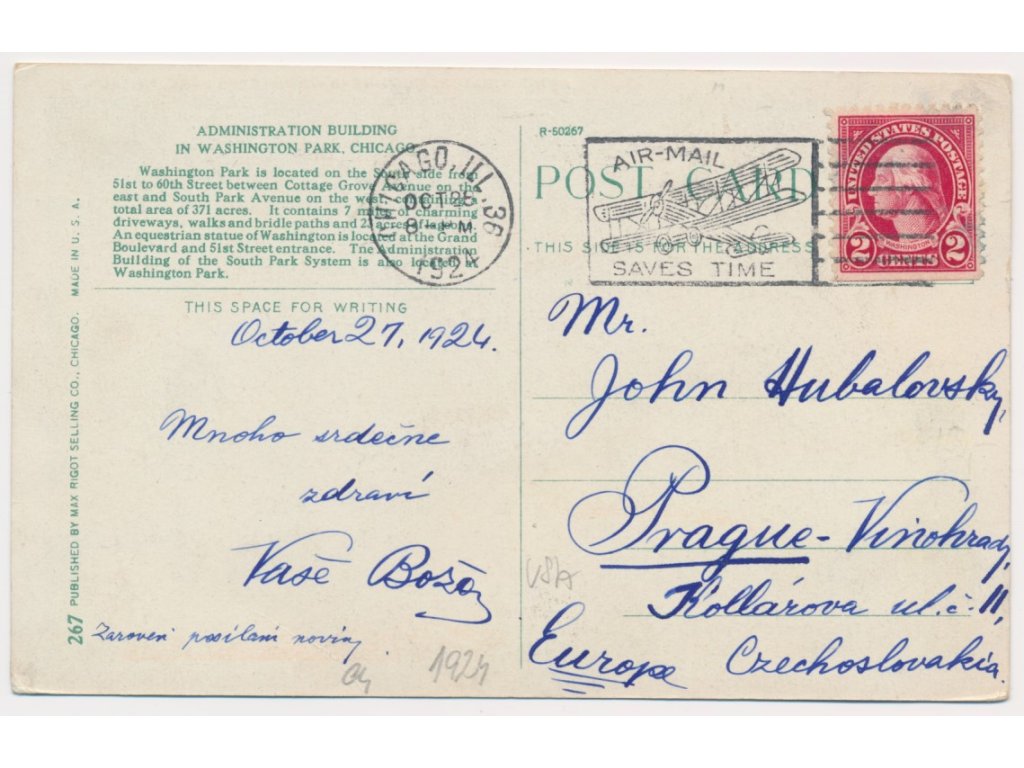 ADMINISTRATION BUILDING
IN WASHINGTON PARK, CHICAGO.
Washington Park is located on the South side from
51st to 60th Street between Cottage Grove Avenue on the
east and South Park Avenue on the west containing a
total area of 371 acres. It contains 7 miles of charming
driveways, walks and bridle paths and 2½ acres of lagoons.
An equestrian statue of Washington is located at the Grand
Boulevard and 51st Street entrance. The Administration
Building of the South Park System is also located at
Washington Park.
THIS SPACE FOR WRITING
October 27, 1924.
Mnoho srdečne
zdraví
Vaše Boža
Zaroveň posílám noviny
1924
267 PUBLISHED BY MAX RIGOT SELLING CO., CHICAGO. MADE IN U. S. A.
CHICAGO, ILL. 36
OCT 28
8 PM
1924
R-50267
POST CARD
THIS SIDE IS FOR THE ADDRESS
AIR-MAIL
SAVES TIME
UNITED STATES POSTAGE
WASHINGTON
2 CENTS 2
Mr.
John Hubalovsky,
Prague - Vinohrady,
Kollárova ul. č. 11,
Europe Czechoslovakia.
USA